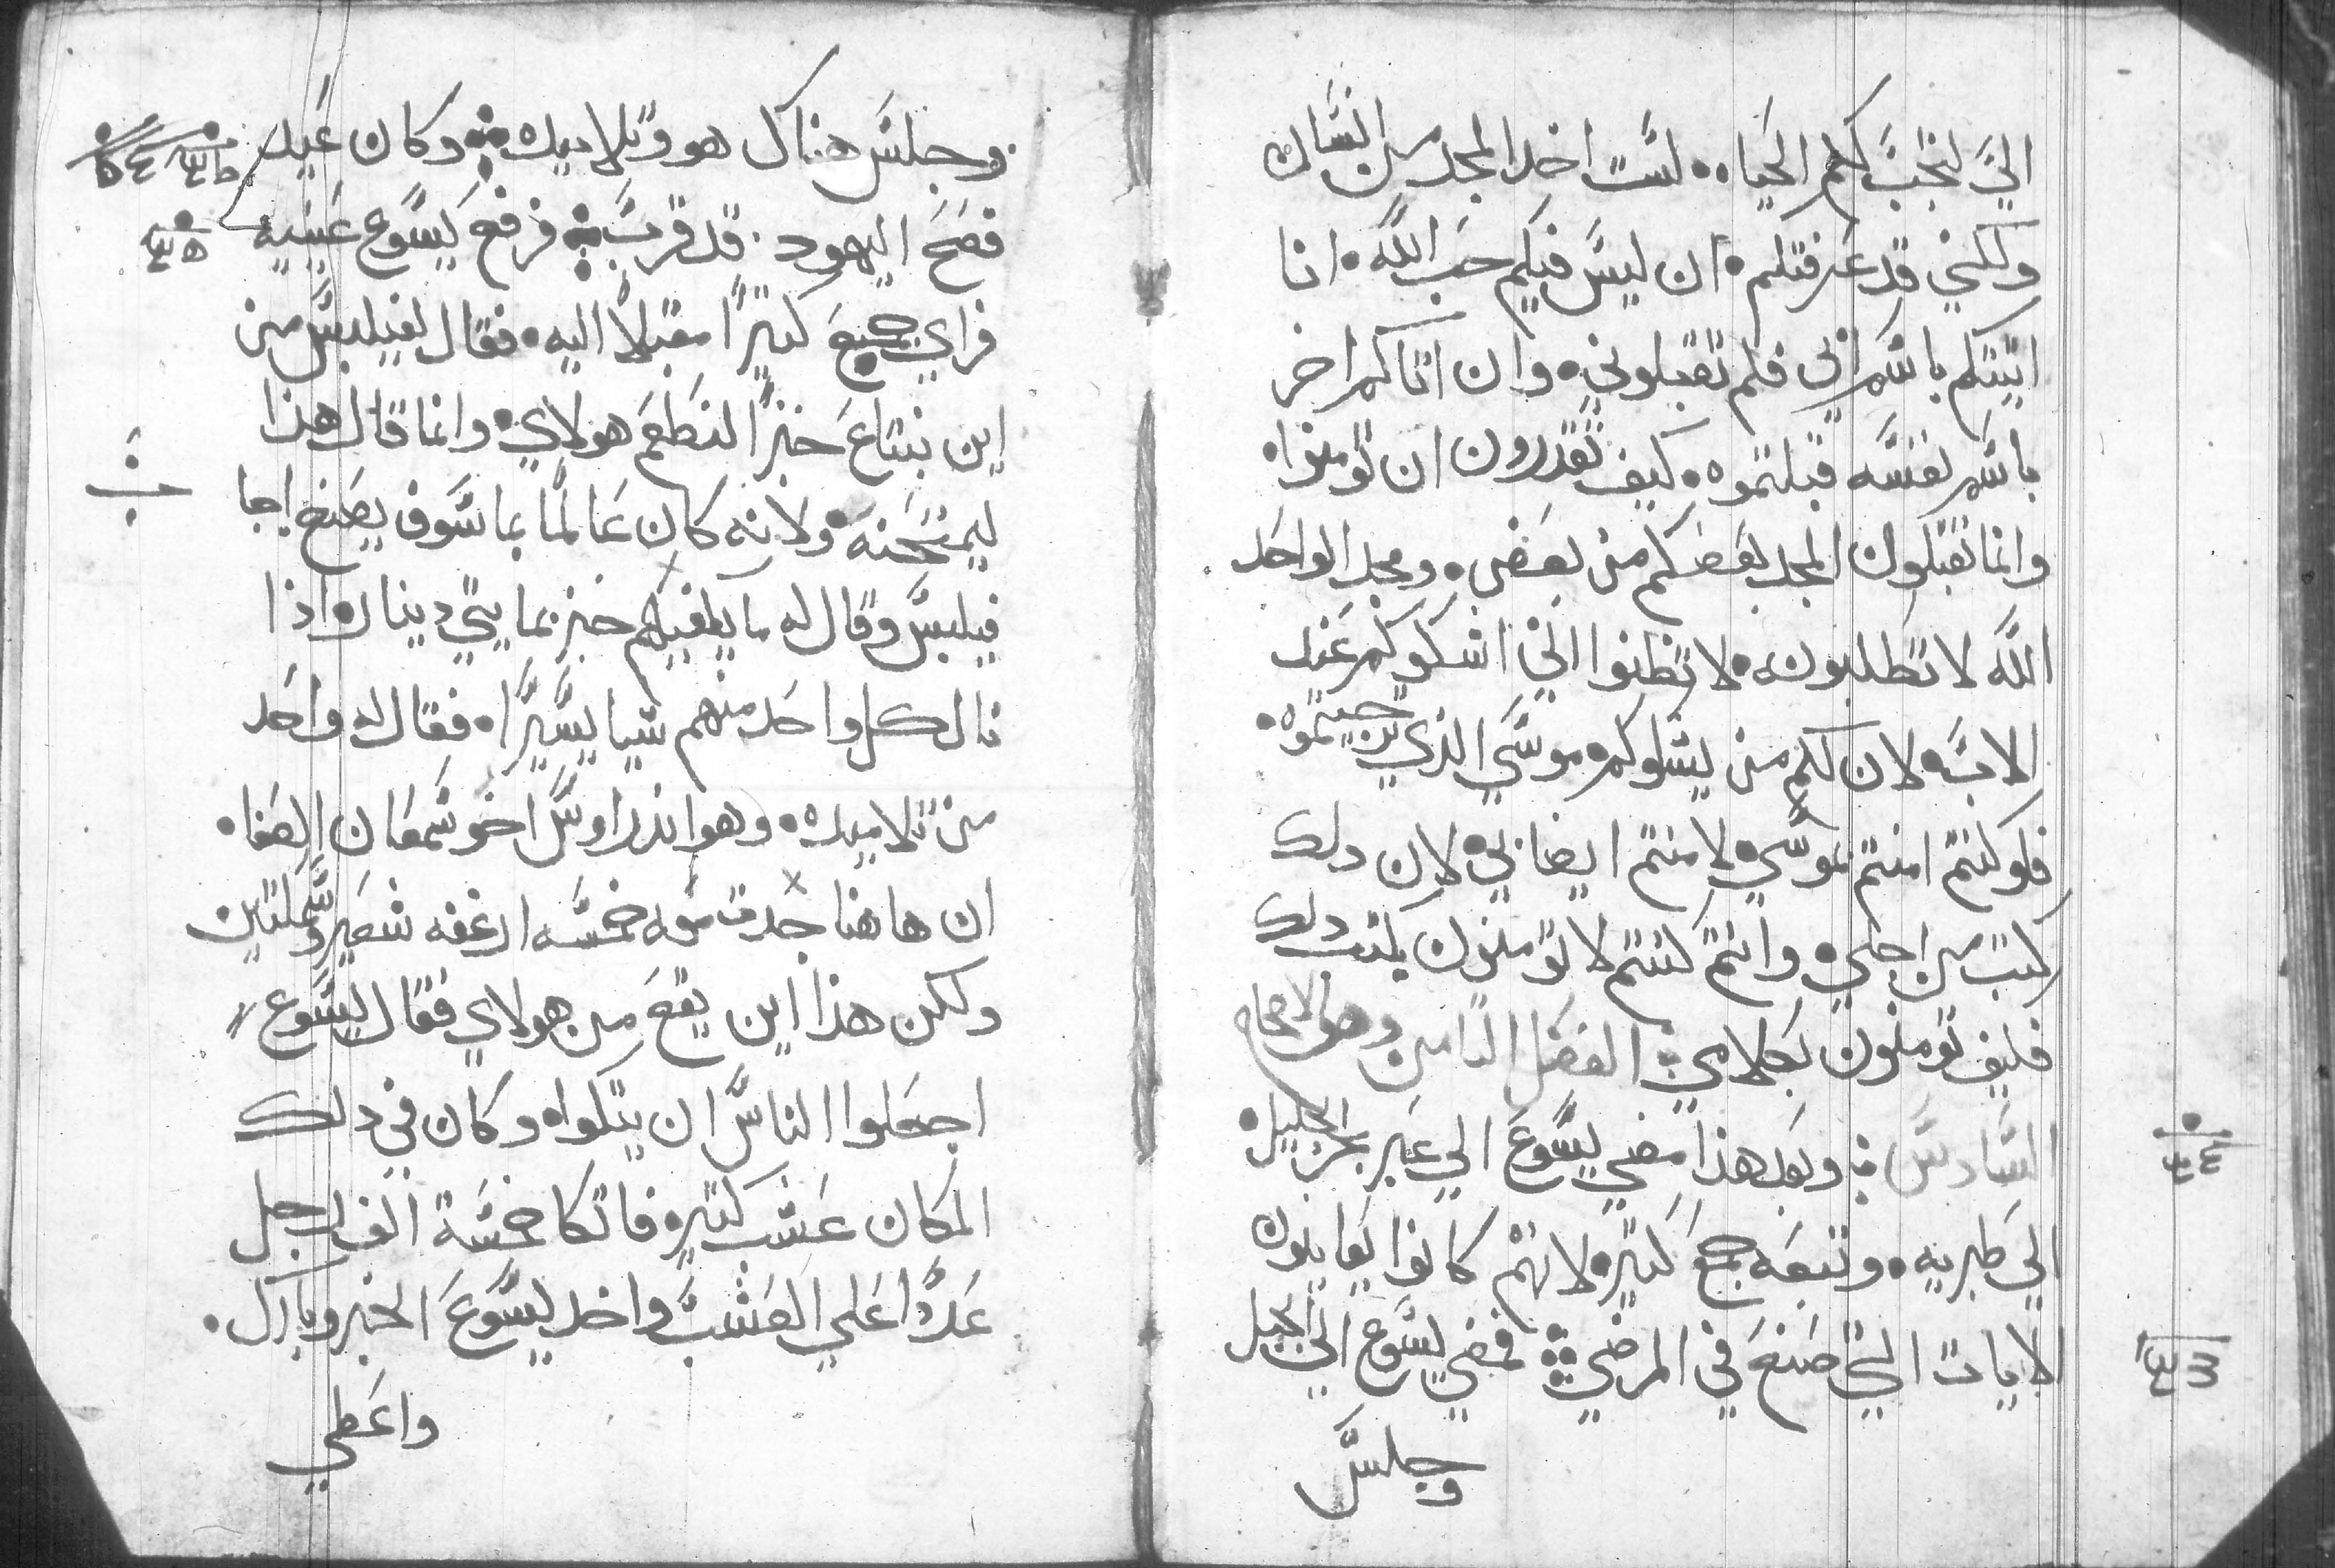 الي لتجب لكم الحياه · لست اخد المجد من انسان
ولكني قد عرفتكم · ان ليس فيكم حب الله · انا
اتيتكم باسم ابي فلم تقبلوني · وان اتاكم اخر
باسم نفسه قبلتموه · كيف تقدرون ان تومنوا ·
وانما تقبلون المجد بعضكم من بعض · ومجد الواحد
الله لا تطلبون · لا تظنوا اني اشكوكم عند
الاب · لان لكم من يشكوكم موسي الذي ترجيتموه ·
فلو كنتم امنتم بموسي · لامنتم ايضا بي · لان دلك
كتب من اجلي · وانتم كنتم لا تومنون بكتب دلك
فكيف تومنون بكلامي ⁘ الفصل التامن وهو الاصحاح
السادس ⁘ وبعد هذا مضي يسوع الي عبر بحر الجليل ·
الي طبريه · وتبعه جمع كتير · لانهم كانوا يعاينون
الايات التي صنع في المرضي ⁘ فمضي يسوع الي الجبل
وجلس
وجلس هناك هو وتلاميده ⁘ وكان عيد
فصح اليهود · قد قرب ⁘ فرفع يسوع عينيه
فراي جميع كتيرا مقبلا اليه · فقال لفيلبس من
اين نبتاع خبزا لنطعم هولاي · وانما قال هذا
ليمتحنه · ولانه كان عالما بما سوف يصنع اجا
فيلبس وقال له ما يكفيهم خبز بمايتي دينار · اذا
نال كل واحد منهم شيا يسيرا · فقال له واحد
من تلاميده · وهو اندراوس اخو شمعان الصفا ·
ان هاهنا حدت معه خمسه ارغفه شعير وسمكتين
ولكن هذا اين يقع من هولاي فقال يسوع
اجعلوا الناس ان يتكوا · وكان في دلك
المكان عشب كتير · فاتكا خمسة الف رجل
عددا علي العشب واخد يسوع الخبز وبارك ·
واعطي